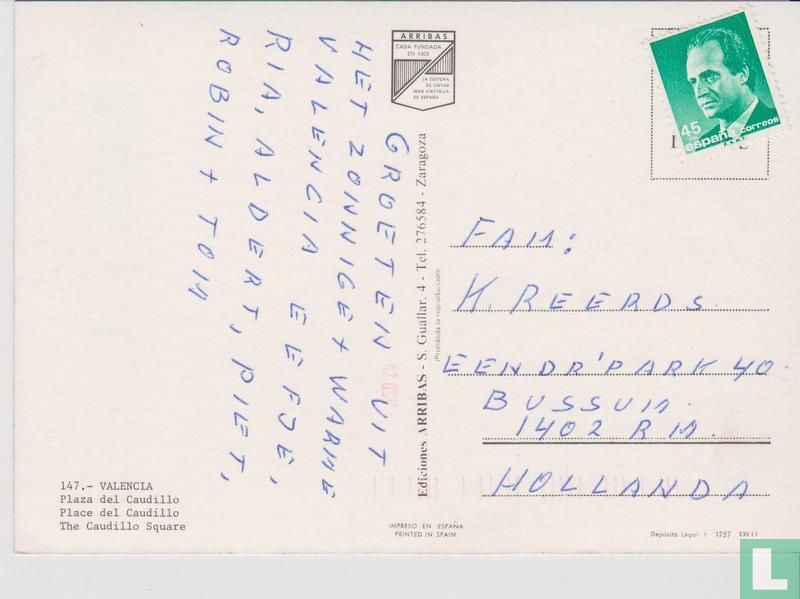 ARRIBAS
CASA FUNDADA
EN 1905
LA EDITORA
DE VISTAS
MAS ANTIGUA
DE ESPAÑA
45
españa correos
GROETEN UIT
HET ZONNIGE + WARME
VALENCIA EEFJE,
RIA, ALDERT, PIET,
ROBIN + TOM
Ediciones ARRIBAS - S. Guallar. 4 - Tel. 276584 - Zaragoza
(Prohibida la reproducción)
FAM:
H. REERDS.
EENDR'PARK 40.
BUSSUM.
1402 RM.
HOLLANDA
147.- VALENCIA
Plaza del Caudillo
Place del Caudillo
The Caudillo Square
IMPRESO EN ESPAÑA
PRINTED IN SPAIN
Depósito Legal 1297 XXVII
L